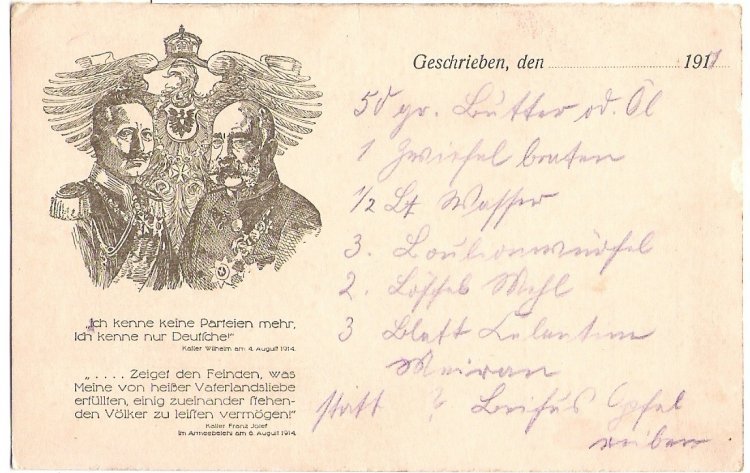 „Ich kenne keine Parteien mehr,
Ich kenne nur Deutsche!“
Kaiser Wilhelm am 4. August 1914.
„. . . . Zeiget den Feinden, was
Meine von heißer Vaterlandsliebe
erfüllten, einig zueinander stehen-
den Völker zu leisten vermögen!“
Kaiser Franz Josef
im Armeebefehl am 6. August 1914.
Geschrieben, den 191
50 gr. Butter od. Öl
1 Zwiefel braten
1/2 Lt Wasser
3. Boulionwürfel
2. Löffel Mehl
3 Blatt Gelantine
Meiran
statt ? Beifus Apfel
reiben